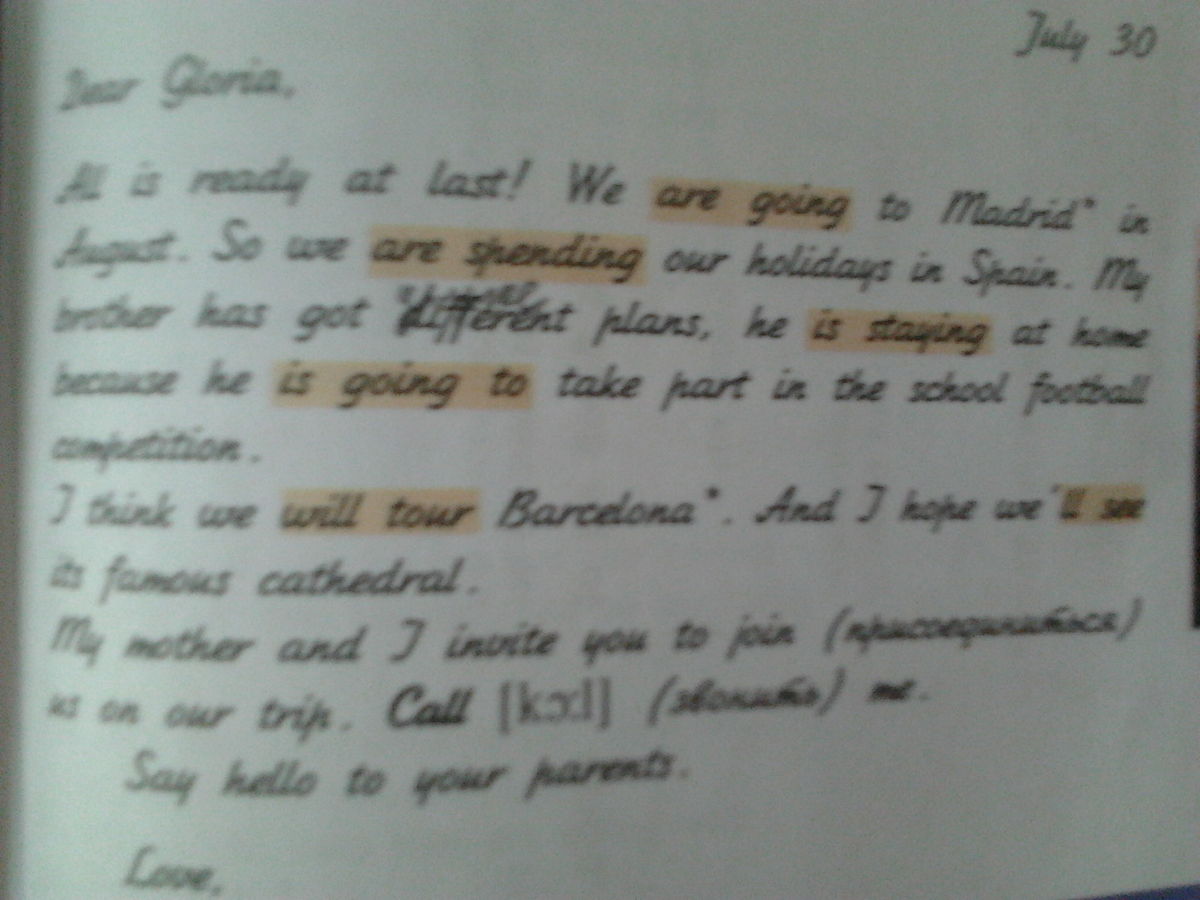 July 30
Dear Gloria,
All is ready at last! We are going to Madrid* in
August. So we are spending our holidays in Spain. My
brother has got different plans, he is staying at home
because he is going to take part in the school football
competition.
I think we will tour Barcelona*. And I hope we'll see
its famous cathedral.
My mother and I invite you to join (присоединиться)
us on our trip. Call [kɔ:l] (звонить) me.
Say hello to your parents.
Love,